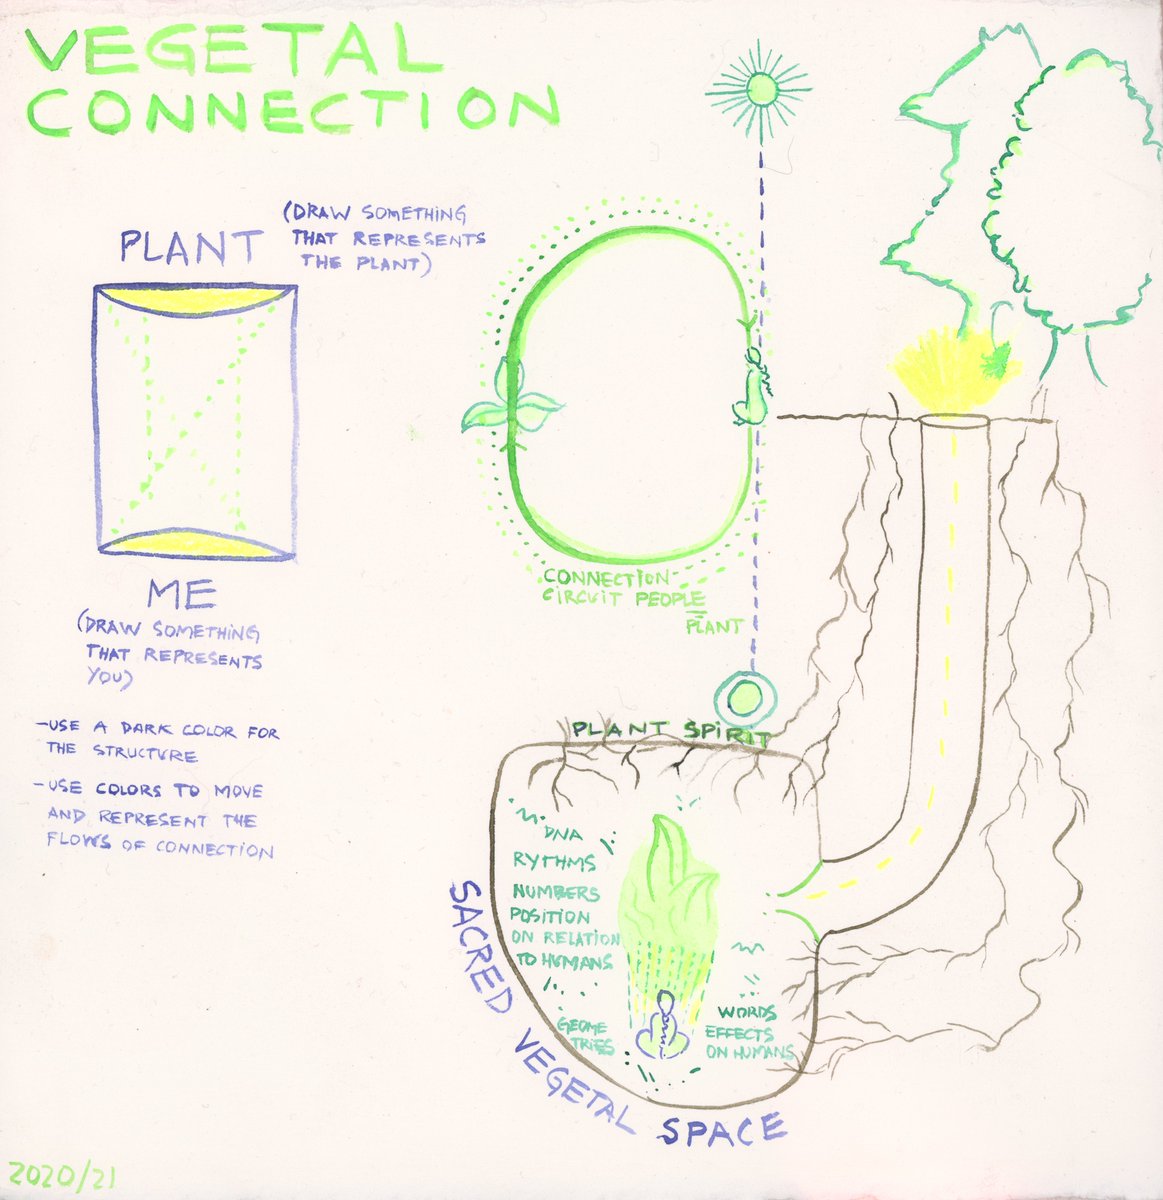 VEGETAL
CONNECTION
PLANT
(DRAW SOMETHING
THAT REPRESENTS
THE PLANT)
ME
(DRAW SOMETHING
THAT REPRESENTS
YOU)
-USE A DARK COLOR FOR
THE STRUCTURE
-USE COLORS TO MOVE
AND REPRESENT THE
FLOWS OF CONNECTION
CONNECTION-
CIRCUIT PEOPLE
PLANT
PLANT SPIRIT
DNA
RYTHMS
NUMBERS
POSITION
ON RELATION
TO HUMANS
GEOME
TRIES
WORDS
EFFECTS
ON HUMANS
SACRED VEGETAL SPACE
2020/21